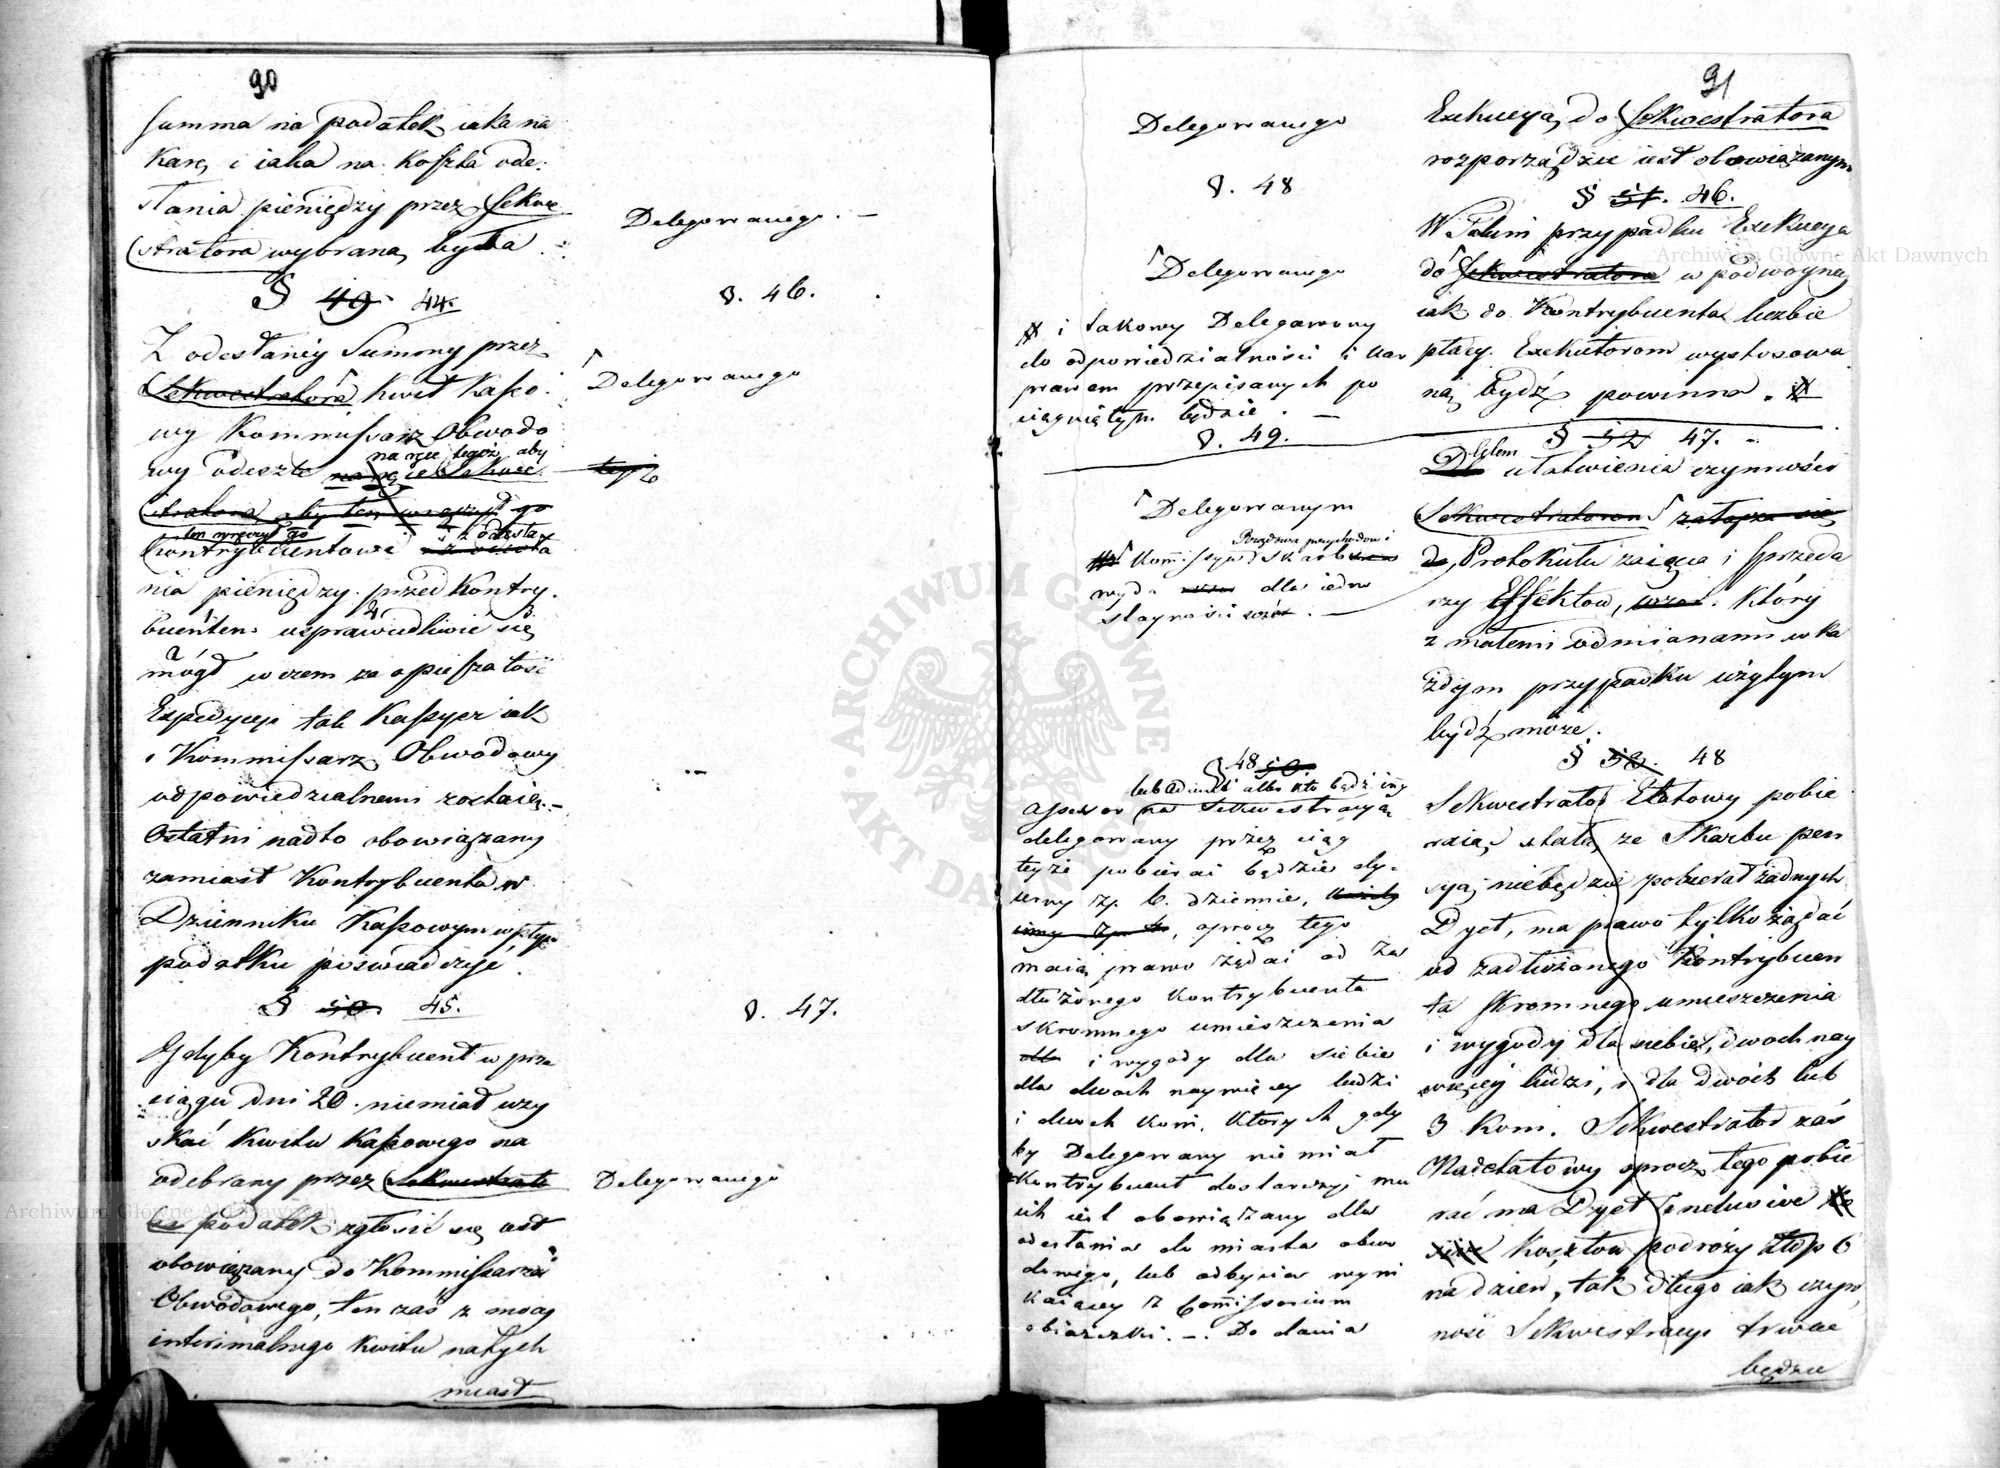 90
Summa na podatek, iaka na
karę i iaka na koszta ode:
słania pieniędzy przez Sekwe
stratora wybraną była.
§ 49. 44.
Z odesłaney Summy przez
Sekwestratora kwit Kasso
wy Kommissarz Obwodo
na ręce tegoż, aby
wy odeszle na ręce Sekwe
stratora, aby ten wręczył go
ten wręczył go
Kontrybuentowi z odesła
nia pieniędzy przed Kontry
buentem usprawiedliwić się
mógł w czem za opieszałość
Expedycyi tak Kassyer iak
i Kommissarz Obwodowy
odpowiedzialnemi zostaią.
Ostatni nadto obowiązany
zamiast Kontrybuenta w
Dzienniku Kassowym wpływ
podatku poświadczyć.
§ 50. 45.
Gdyby Kontrybuent w prze
ciągu dni 20. niemiał uzy
skać kwitu Kassowego na
odebrany przez Sekwestrato
ra podatek zgłosić się iest
obowiązany do Kommissarza
Obwodowego, ten zaś z mocy
interimalnego kwitu natych
miast
Delegowanego. —
§. 46.
Delegowanego
§. 47.
Delegowanego
91
Delegowanego
§. 48
Delegowanego
i takowy Delegowany
do odpowiedzialności i kar
prawem przepisanych po
ciągniętym będzie. —
§. 49.
Delegowanym
Rządowa przychodów i
Kommissya Skarbu
wyda dla iedno
stayności wzór. —
§ 48 50.
lub adiunkt albo kto bądź inny
Assessor na Sekwestracyą
delegowany przez ciąg
teyże pobierać będzie dy-
urny zp. 6. dziennie,
oprócz tego
maią prawo żądać od za
dłużonego Kontrybuenta
skromnego umieszczenia
i wygody dla siebie
dla dwóch naywięcey ludzi
i dwóch koni, których gdy
by Delegowany niemiał
Kontrybuent dostarczyć mu
ich iest obowiązany dla
odesłania do miasta obwo
dowego, lub odbycia wyni
kaiącey z Commissorium
obiazczki. —. Do dania
Exekucyą, do Sekwestratora
rozporządzić iest obowiązanym
§ 51. 46.
W Takim przypadku Exekucya
do Sekwestratora w podwoyney
iak do Kontrybuenta liczbie
płacy Exekutorom wystosowa
ną bydź powinna.
§ 52 47. —
Celem
Dla ułatwienia czynności
Sekwestratorom załącza się
do Protokułu zaięcia i sprzeda
rzy Effektow, wzór. Który
z małemi odmianami w ka
żdym przypadku użytym
bydź może.
§ 53. 48
Sekwestrator Etatowy pobie
raiąc stałą ze Skarbu pen
syą niebędzie pobierał żadnych
Dyet, ma prawo tylko żądać
od zadłużonego Kontrybuen
ta skromnego umieszczenia
i wygody dla siebie, dwoch nay
więcey ludzi, i dla dwóch lub
3 koni. Sekwestrator zaś
Nadetatowy oprocz tego pobie
rać ma Dyet inclusive
kosztow podróży Złp 6
na dzień, tak długo iak czyn
ność Sekwestracyi trwac
będzie
Archiwum Główne Akt Dawnych
Archiwum Główne Akt Dawnych
ARCHIWUM GŁÓWNE AKT DAWNYCH